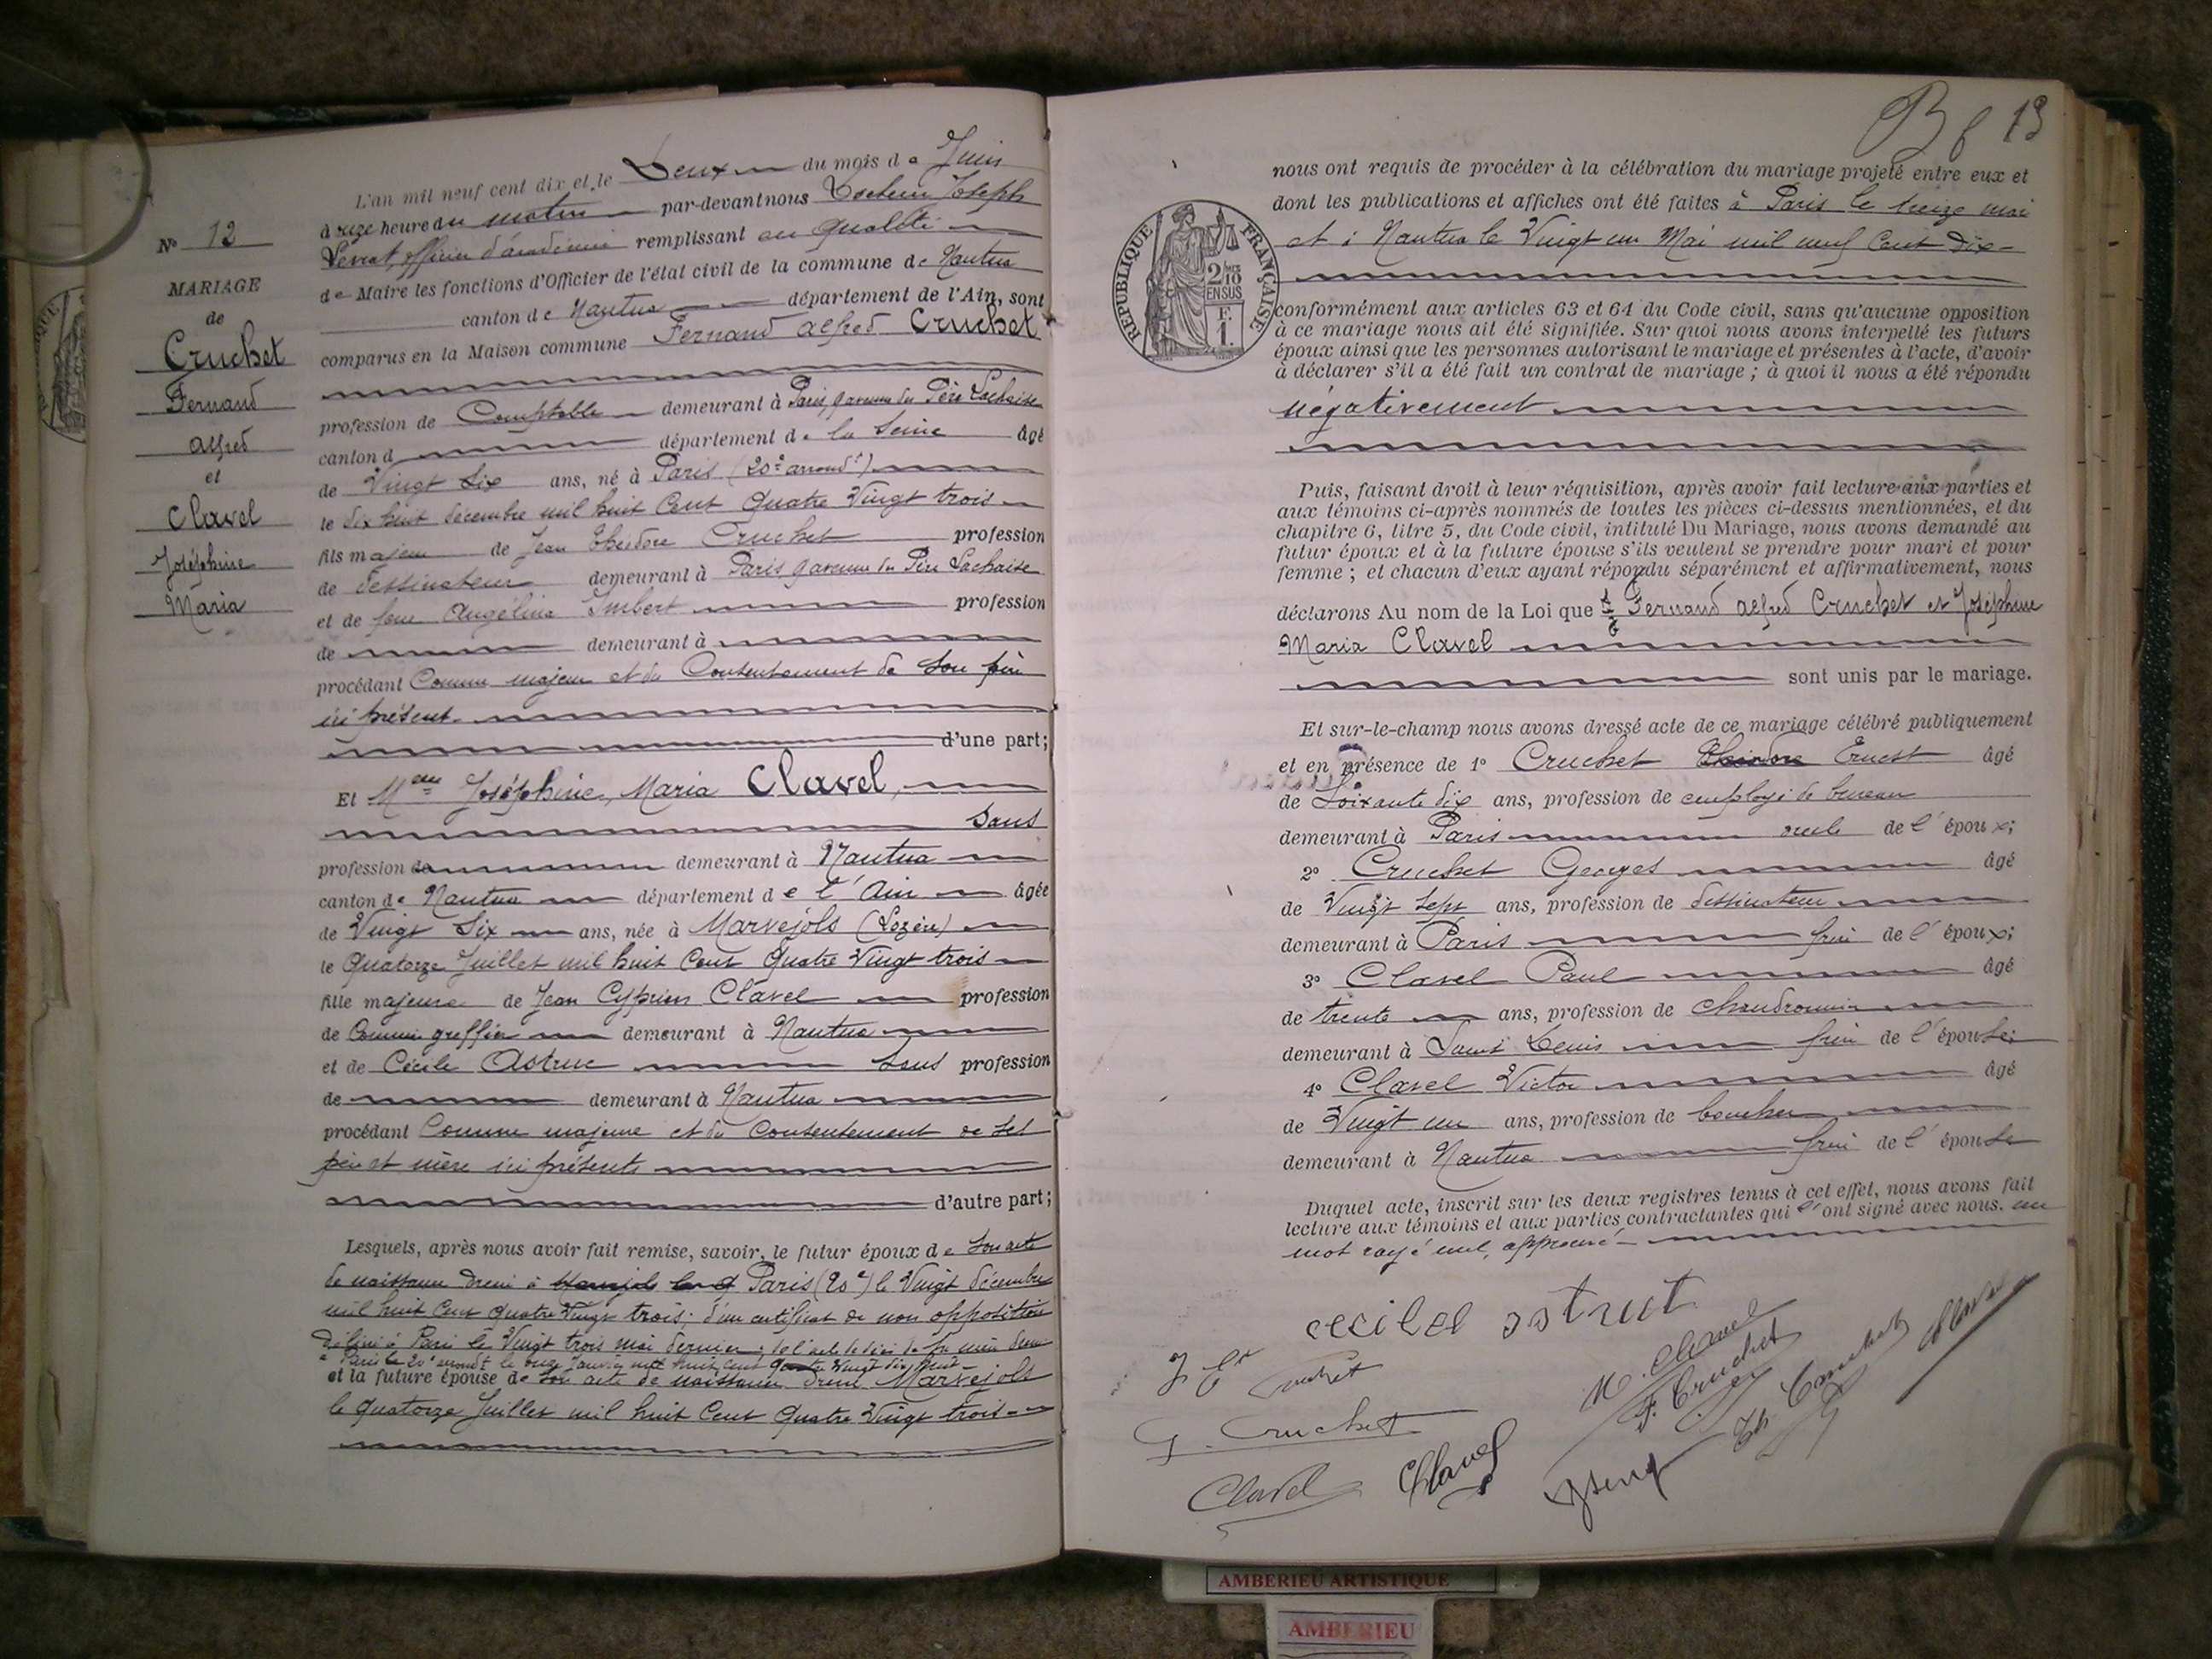 L'an mil neuf cent dix et le Deux du mois de Juin
à onze heure du matin par-devant nous Docteur Joseph
Levrat, officier d'académie remplissant en qualité
de Maire les fonctions d'Officier de l'état civil de la commune de Nantua
canton de Nantua département de l'Ain, sont
comparus en la Maison commune Fernand Alfred Cruchet
profession de Comptable demeurant à Paris, 9 avenue du Père Lachaise
canton d département de la Seine âgé
de Vingt Six ans, né à Paris (20e arrondt)
le dix huit décembre mil huit Cent Quatre Vingt trois
fils majeur de Jean Théodore Cruchet profession
de dessinateur demeurant à Paris, 9 avenue du Père Lachaise
et de feue Angélina Imbert profession
de demeurant à
procédant Comme majeur et du Consentement de Son père
ici présent.
d'une part;
Et Melle Joséphine, Maria Clavel,
Sans
profession de demeurant à Nantua
canton de Nantua département de l'Ain âgée
de Vingt Six ans, née à Marvejols (Lozère)
le Quatorze Juillet mil huit Cent Quatre Vingt trois
fille majeure de Jean Cyprien Clavel profession
de Commis greffier demeurant à Nantua
et de Cécile Astruc Sans profession
de demeurant à Nantua
procédant Comme majeure et du Consentement de Ses
père et mère ici présents
d'autre part;
Lesquels, après nous avoir fait remise, savoir, le futur époux de Son acte
de naissance à Paris (20e) le Vingt décembre
mil huit Cent Quatre Vingt trois; d'un certificat de non opposition
Délivré à Paris le Vingt trois mai dernier; de l'acte de décès de sa mère
à Paris le 20e arrondt le onze Janvier mil huit cent quatre vingt dix huit
et la future épouse de Son acte de naissance Marvejols
le Quatorze Juillet mil huit Cent Quatre Vingt trois
No 12
MARIAGE
de
Cruchet
Fernand
Alfred
et
Clavel
Joséphine
Maria
13
nous ont requis de procéder à la célébration du mariage projeté entre eux et
dont les publications et affiches ont été faites à Paris le treize mai
et à Nantua le Vingt un Mai mil neuf Cent Dix
RÉPUBLIQUE FRANÇAISE
2/10
EN SUS
F.
1.
conformément aux articles 63 et 64 du Code civil, sans qu'aucune opposition
à ce mariage nous ait été signifiée. Sur quoi nous avons interpellé les futurs
époux ainsi que les personnes autorisant le mariage et présentes à l'acte, d'avoir
à déclarer s'il a été fait un contrat de mariage; à quoi il nous a été répondu
négativement
Puis, faisant droit à leur réquisition, après avoir fait lecture aux parties et
aux témoins ci-après nommés de toutes les pièces ci-dessus mentionnées, et du
chapitre 6, titre 5, du Code civil, intitulé Du Mariage, nous avons demandé au
futur époux et à la future épouse s'ils veulent se prendre pour mari et pour
femme; et chacun d'eux ayant répondu séparément et affirmativement, nous
déclarons Au nom de la Loi que Fernand Alfred Cruchet et Joséphine
Maria Clavel
sont unis par le mariage.
Et sur-le-champ nous avons dressé acte de ce mariage célébré publiquement
et en présence de 1o Cruchet Théodore Ernest âgé
de Soixante dix ans, profession de employé de bureau
demeurant à Paris oncle de l'époux;
2o Cruchet Georges âgé
de Vingt Sept ans, profession de dessinateur
demeurant à Paris frère de l'époux;
3o Clavel Paul âgé
de trente ans, profession de chaudronnier
demeurant à Saint Denis frère de l'épouse;
4o Clavel Victor âgé
de Vingt un ans, profession de boucher
demeurant à Nantua frère de l'épouse
Duquel acte, inscrit sur les deux registres tenus à cet effet, nous avons fait
lecture aux témoins et aux parties contractantes qui l'ont signé avec nous. un
mot rayé nul, approuvé
cecile astruct
M. Clavel
F. Cruchet
Th. Cruchet
Clavel
G. Cruchet
Clavel
Clavel
AMBERIEU ARTISTIQUE
AMBERIEU